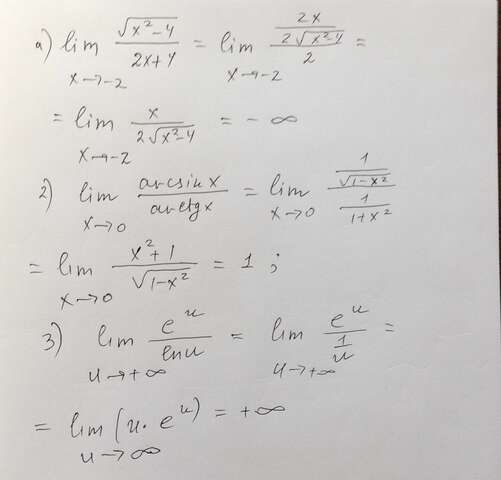 a) lim x→-2 √(x²-4) / (2x+4) = lim x→-2 (2x / (2√(x²-4))) / 2 =
= lim x→-2 x / (2√(x²-4)) = -∞
2) lim x→0 arcsin x / arctg x = lim x→0 (1 / √(1-x²)) / (1 / (1+x²))
= lim x→0 (x²+1) / √(1-x²) = 1 ;
3) lim u→+∞ e^u / ln u = lim u→+∞ e^u / (1/u) =
= lim u→∞ (u · e^u) = +∞